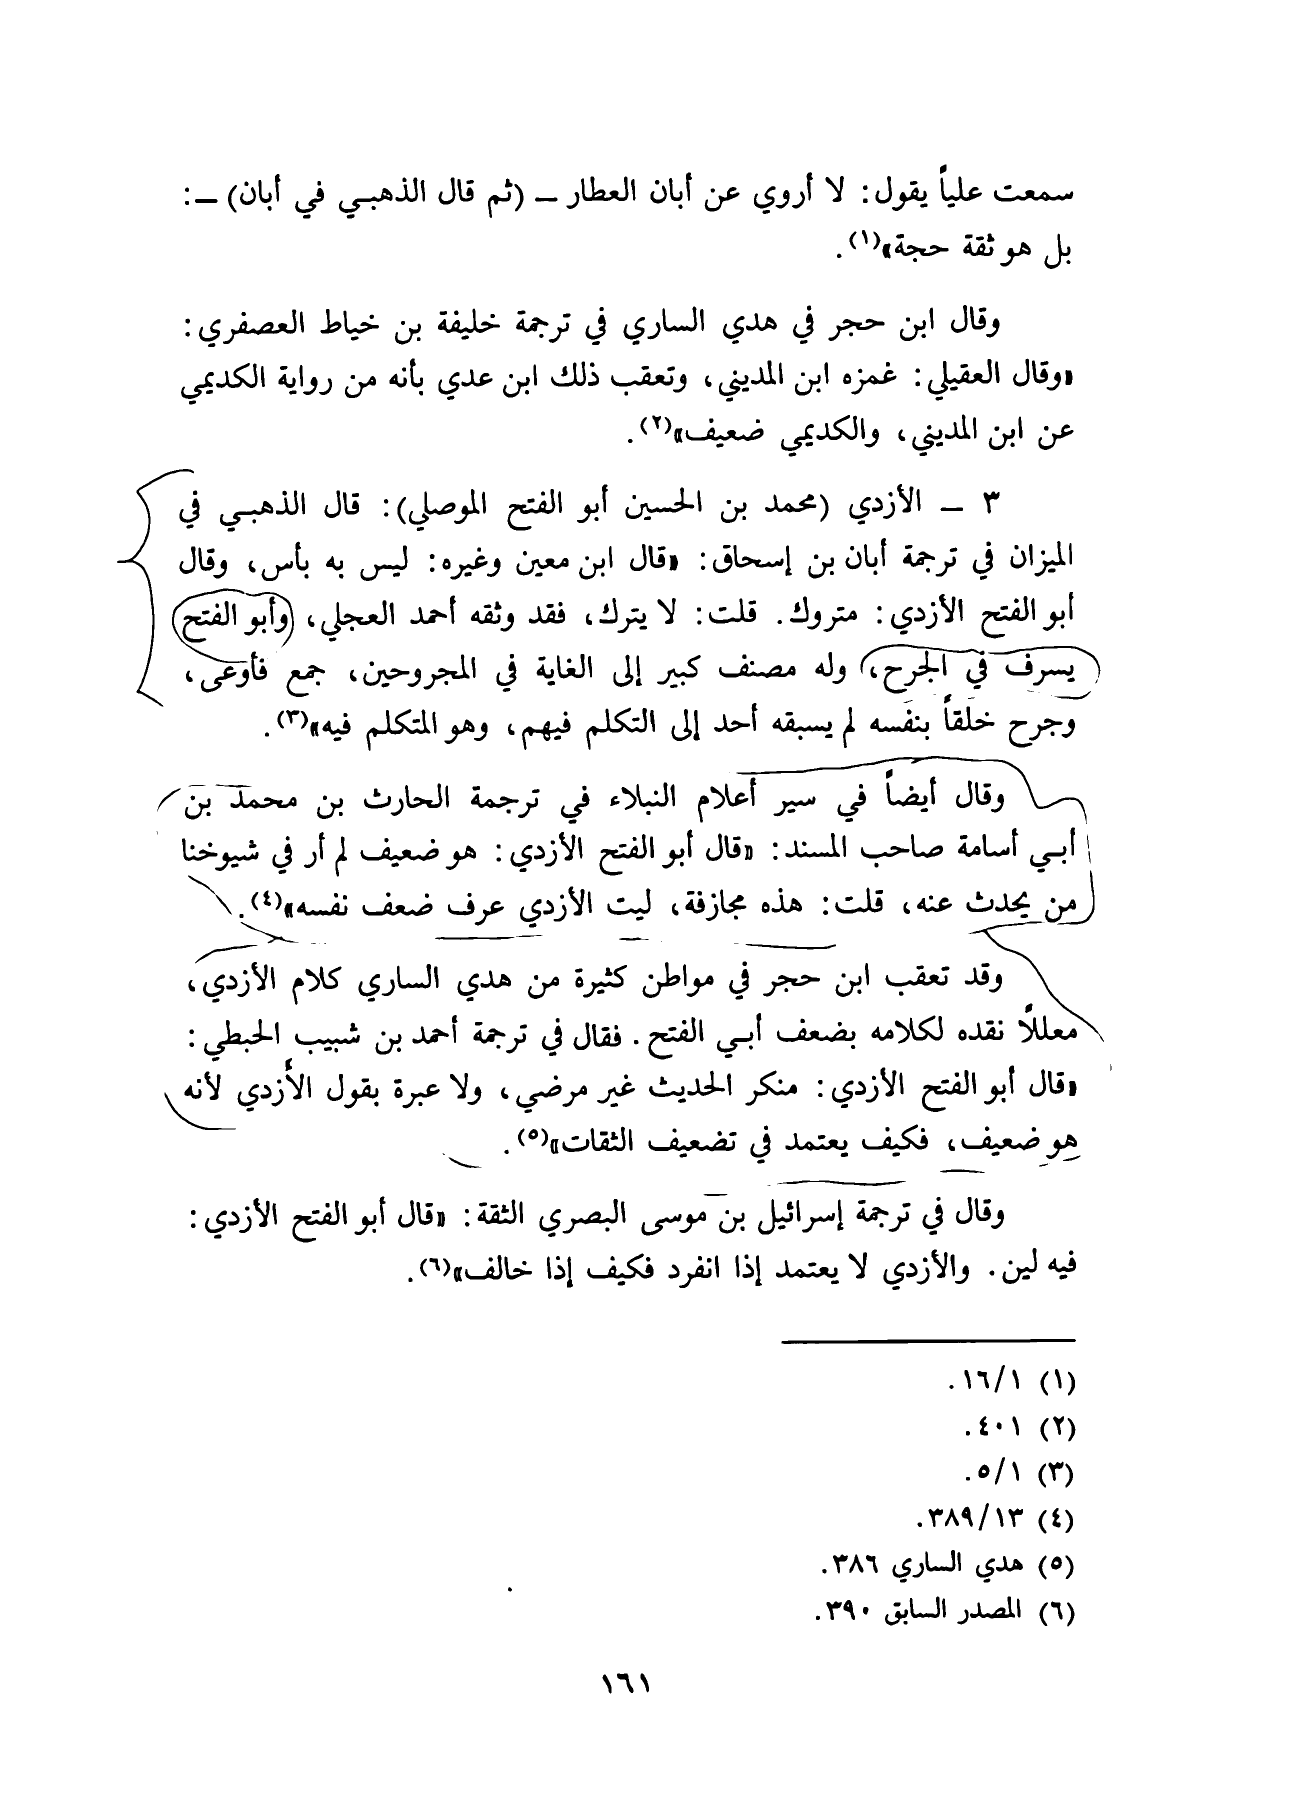 سمعت علياً يقول: لا أروي عن أبان العطار ــ (ثم قال الذهبي في أبان) ــ:
بل هو ثقة حجة»(١).
وقال ابن حجر في هدي الساري في ترجمة خليفة بن خياط العصفري:
«وقال العقيلي: غمزه ابن المديني، وتعقب ذلك ابن عدي بأنه من رواية الكديمي
عن ابن المديني، والكديمي ضعيف»(٢).
٣ ــ الأزدي (محمد بن الحسين أبو الفتح الموصلي): قال الذهبي في
الميزان في ترجمة أبان بن إسحاق: «قال ابن معين وغيره: ليس به بأس، وقال
أبو الفتح الأزدي: متروك. قلت: لا يترك، فقد وثقه أحمد العجلي، وأبو الفتح
يسرف في الجرح، وله مصنف كبير إلى الغاية في المجروحين، جمع فأوعى،
وجرح خلقاً بنفسه لم يسبقه أحد إلى التكلم فيهم، وهو المتكلم فيه»(٣).
وقال أيضاً في سير أعلام النبلاء في ترجمة الحارث بن محمد بن
أبي أسامة صاحب المسند: «قال أبو الفتح الأزدي: هو ضعيف لم أر في شيوخنا
من يحدث عنه، قلت: هذه مجازفة، ليت الأزدي عرف ضعف نفسه»(٤).
وقد تعقب ابن حجر في مواطن كثيرة من هدي الساري كلام الأزدي،
معللاً نقده لكلامه بضعف أبي الفتح. فقال في ترجمة أحمد بن شبيب الحبطي:
«قال أبو الفتح الأزدي: منكر الحديث غير مرضي، ولا عبرة بقول الأزدي لأنه
هو ضعيف، فكيف يعتمد في تضعيف الثقات»(٥).
وقال في ترجمة إسرائيل بن موسى البصري الثقة: «قال أبو الفتح الأزدي:
فيه لين. والأزدي لا يعتمد إذا انفرد فكيف إذا خالف»(٦).
(١) ١٦/١.
(٢) ٤٠١.
(٣) ٥/١.
(٤) ٣٨٩/١٣.
(٥) هدي الساري ٣٨٦.
(٦) المصدر السابق ٣٩٠.
١٦١